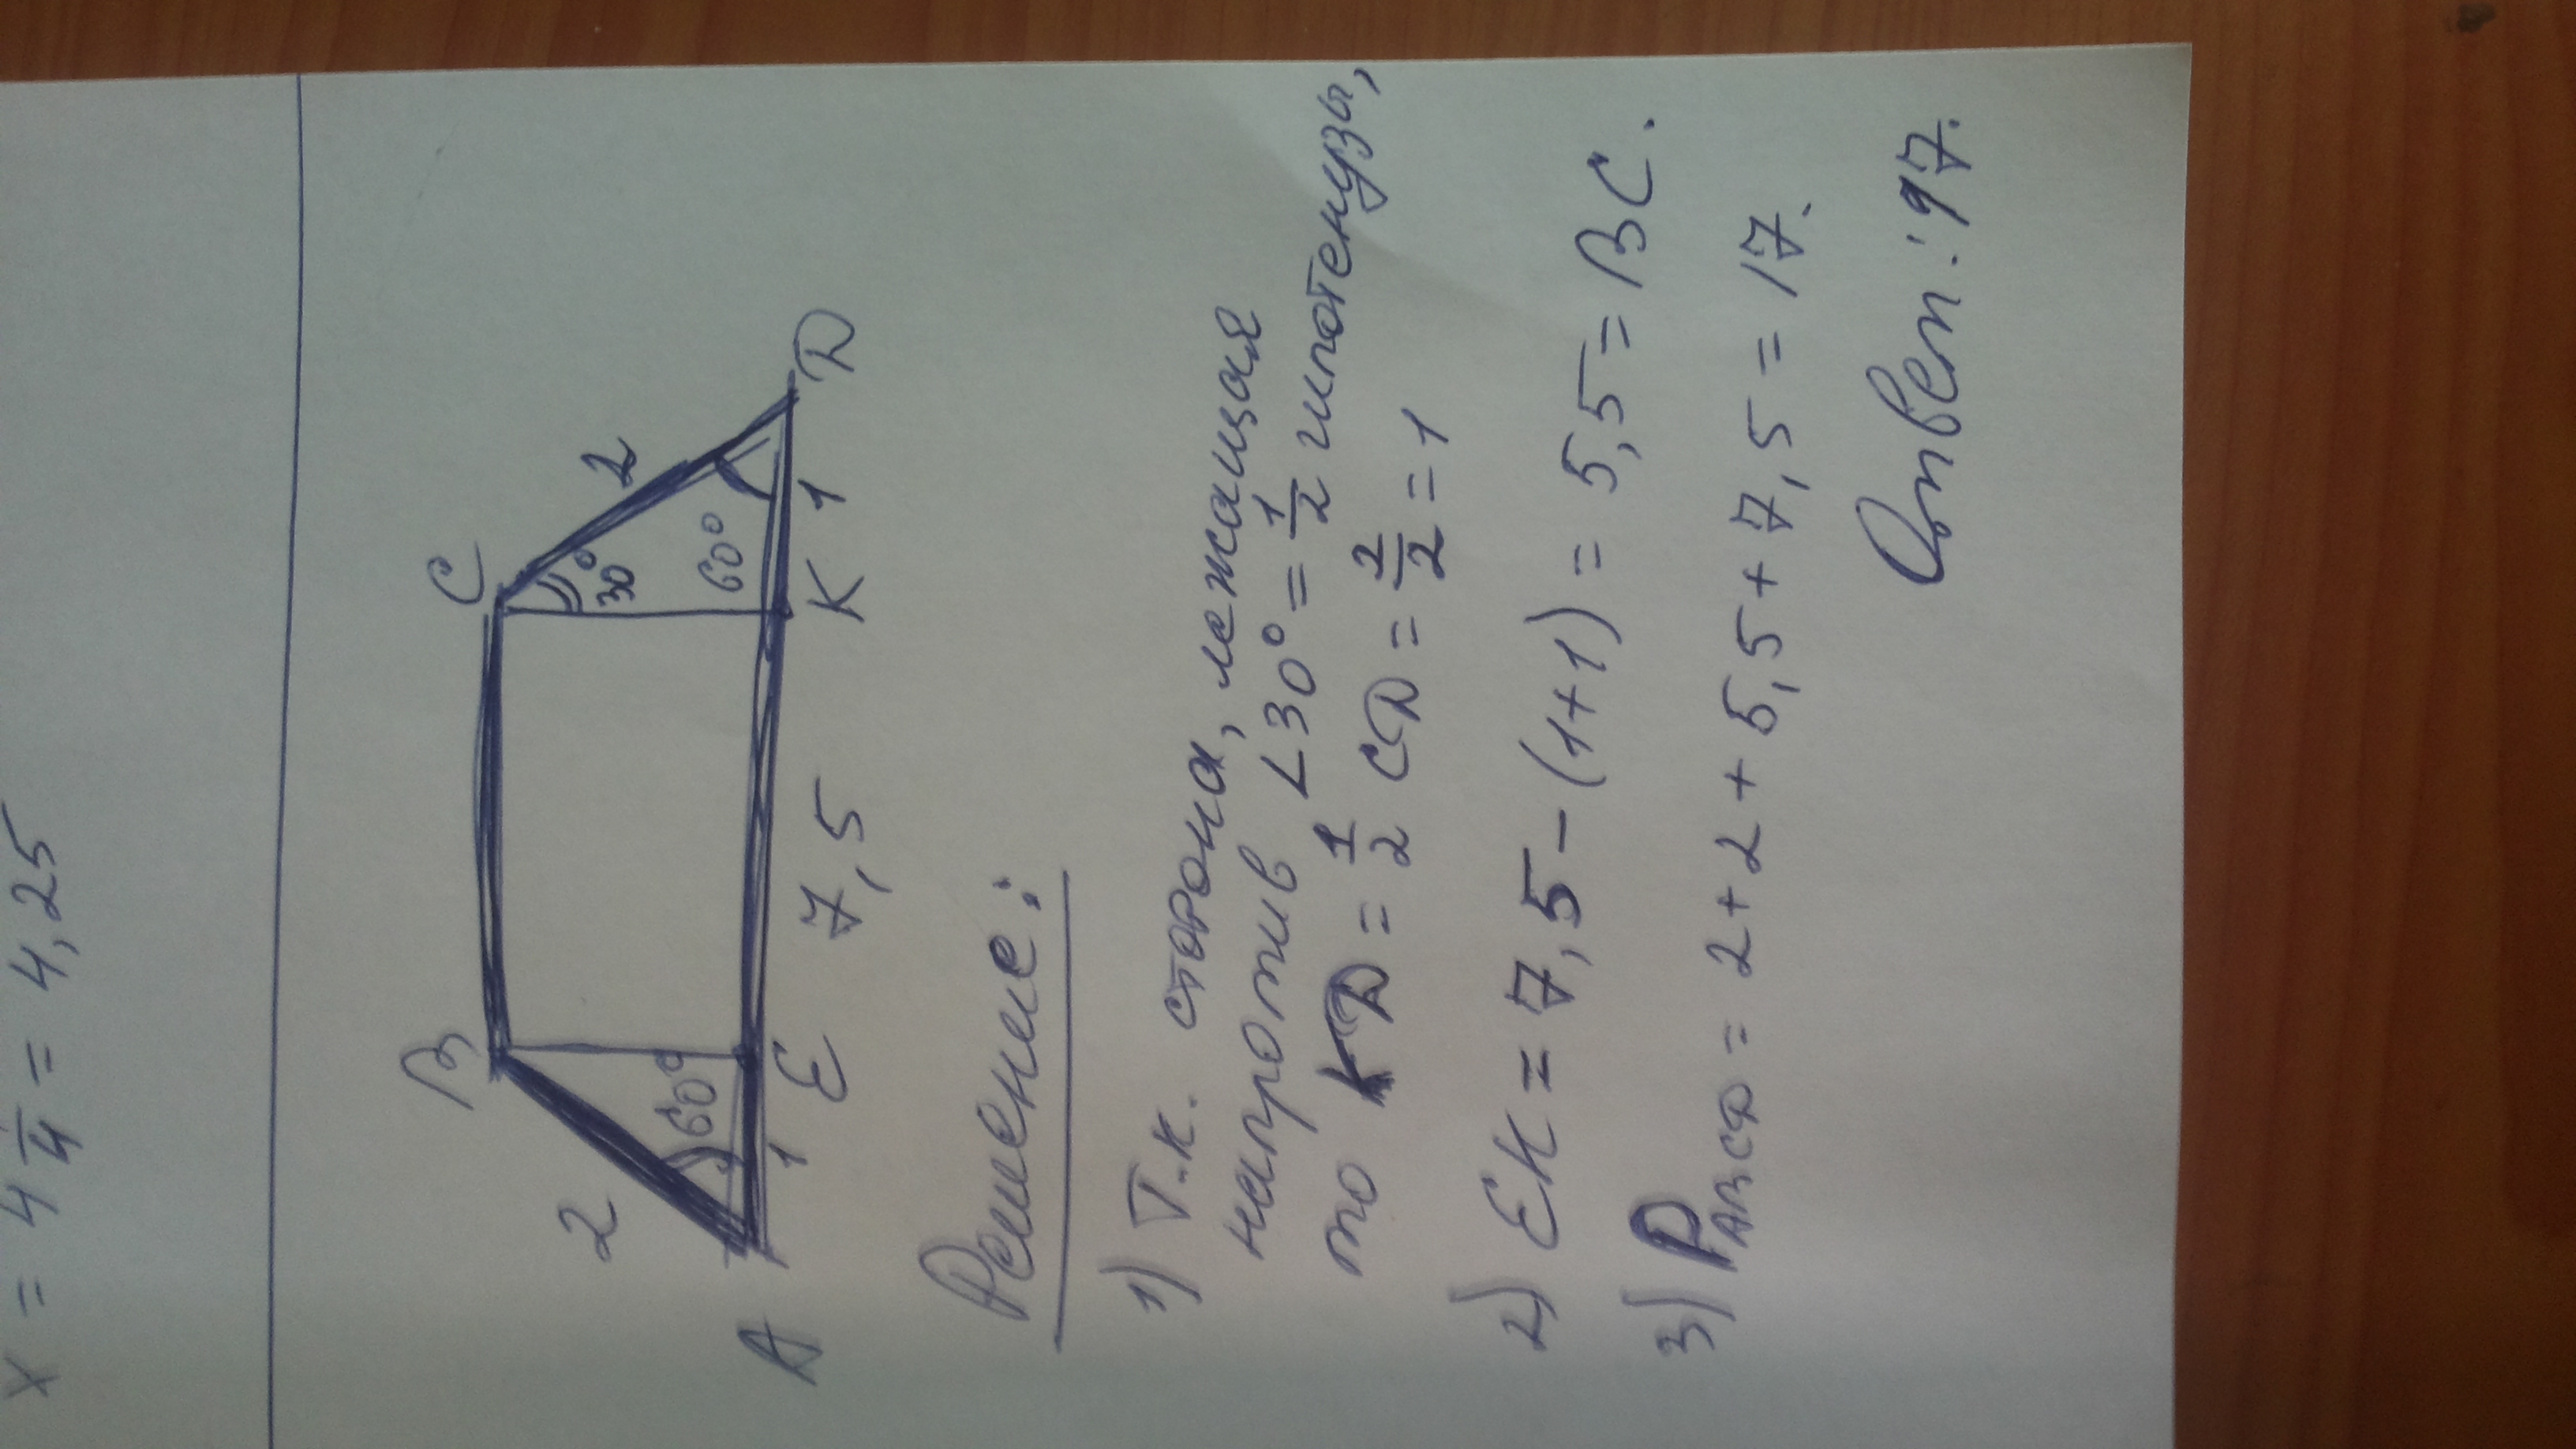 x = 4 1/4 = 4,25
B
C
2
2
60°
30°
60°
A
1
E
7,5
K
1
D
Решение:
1) Т.к. сторона, лежащая
напротив ∠30° = 1/2 гипотенузы,
то KD = 1/2 CD = 2/2 = 1
2) EK = 7,5 - (1+1) = 5,5 = BC.
3) P ABCD = 2 + 2 + 5,5 + 7,5 = 17.
Ответ: 17.